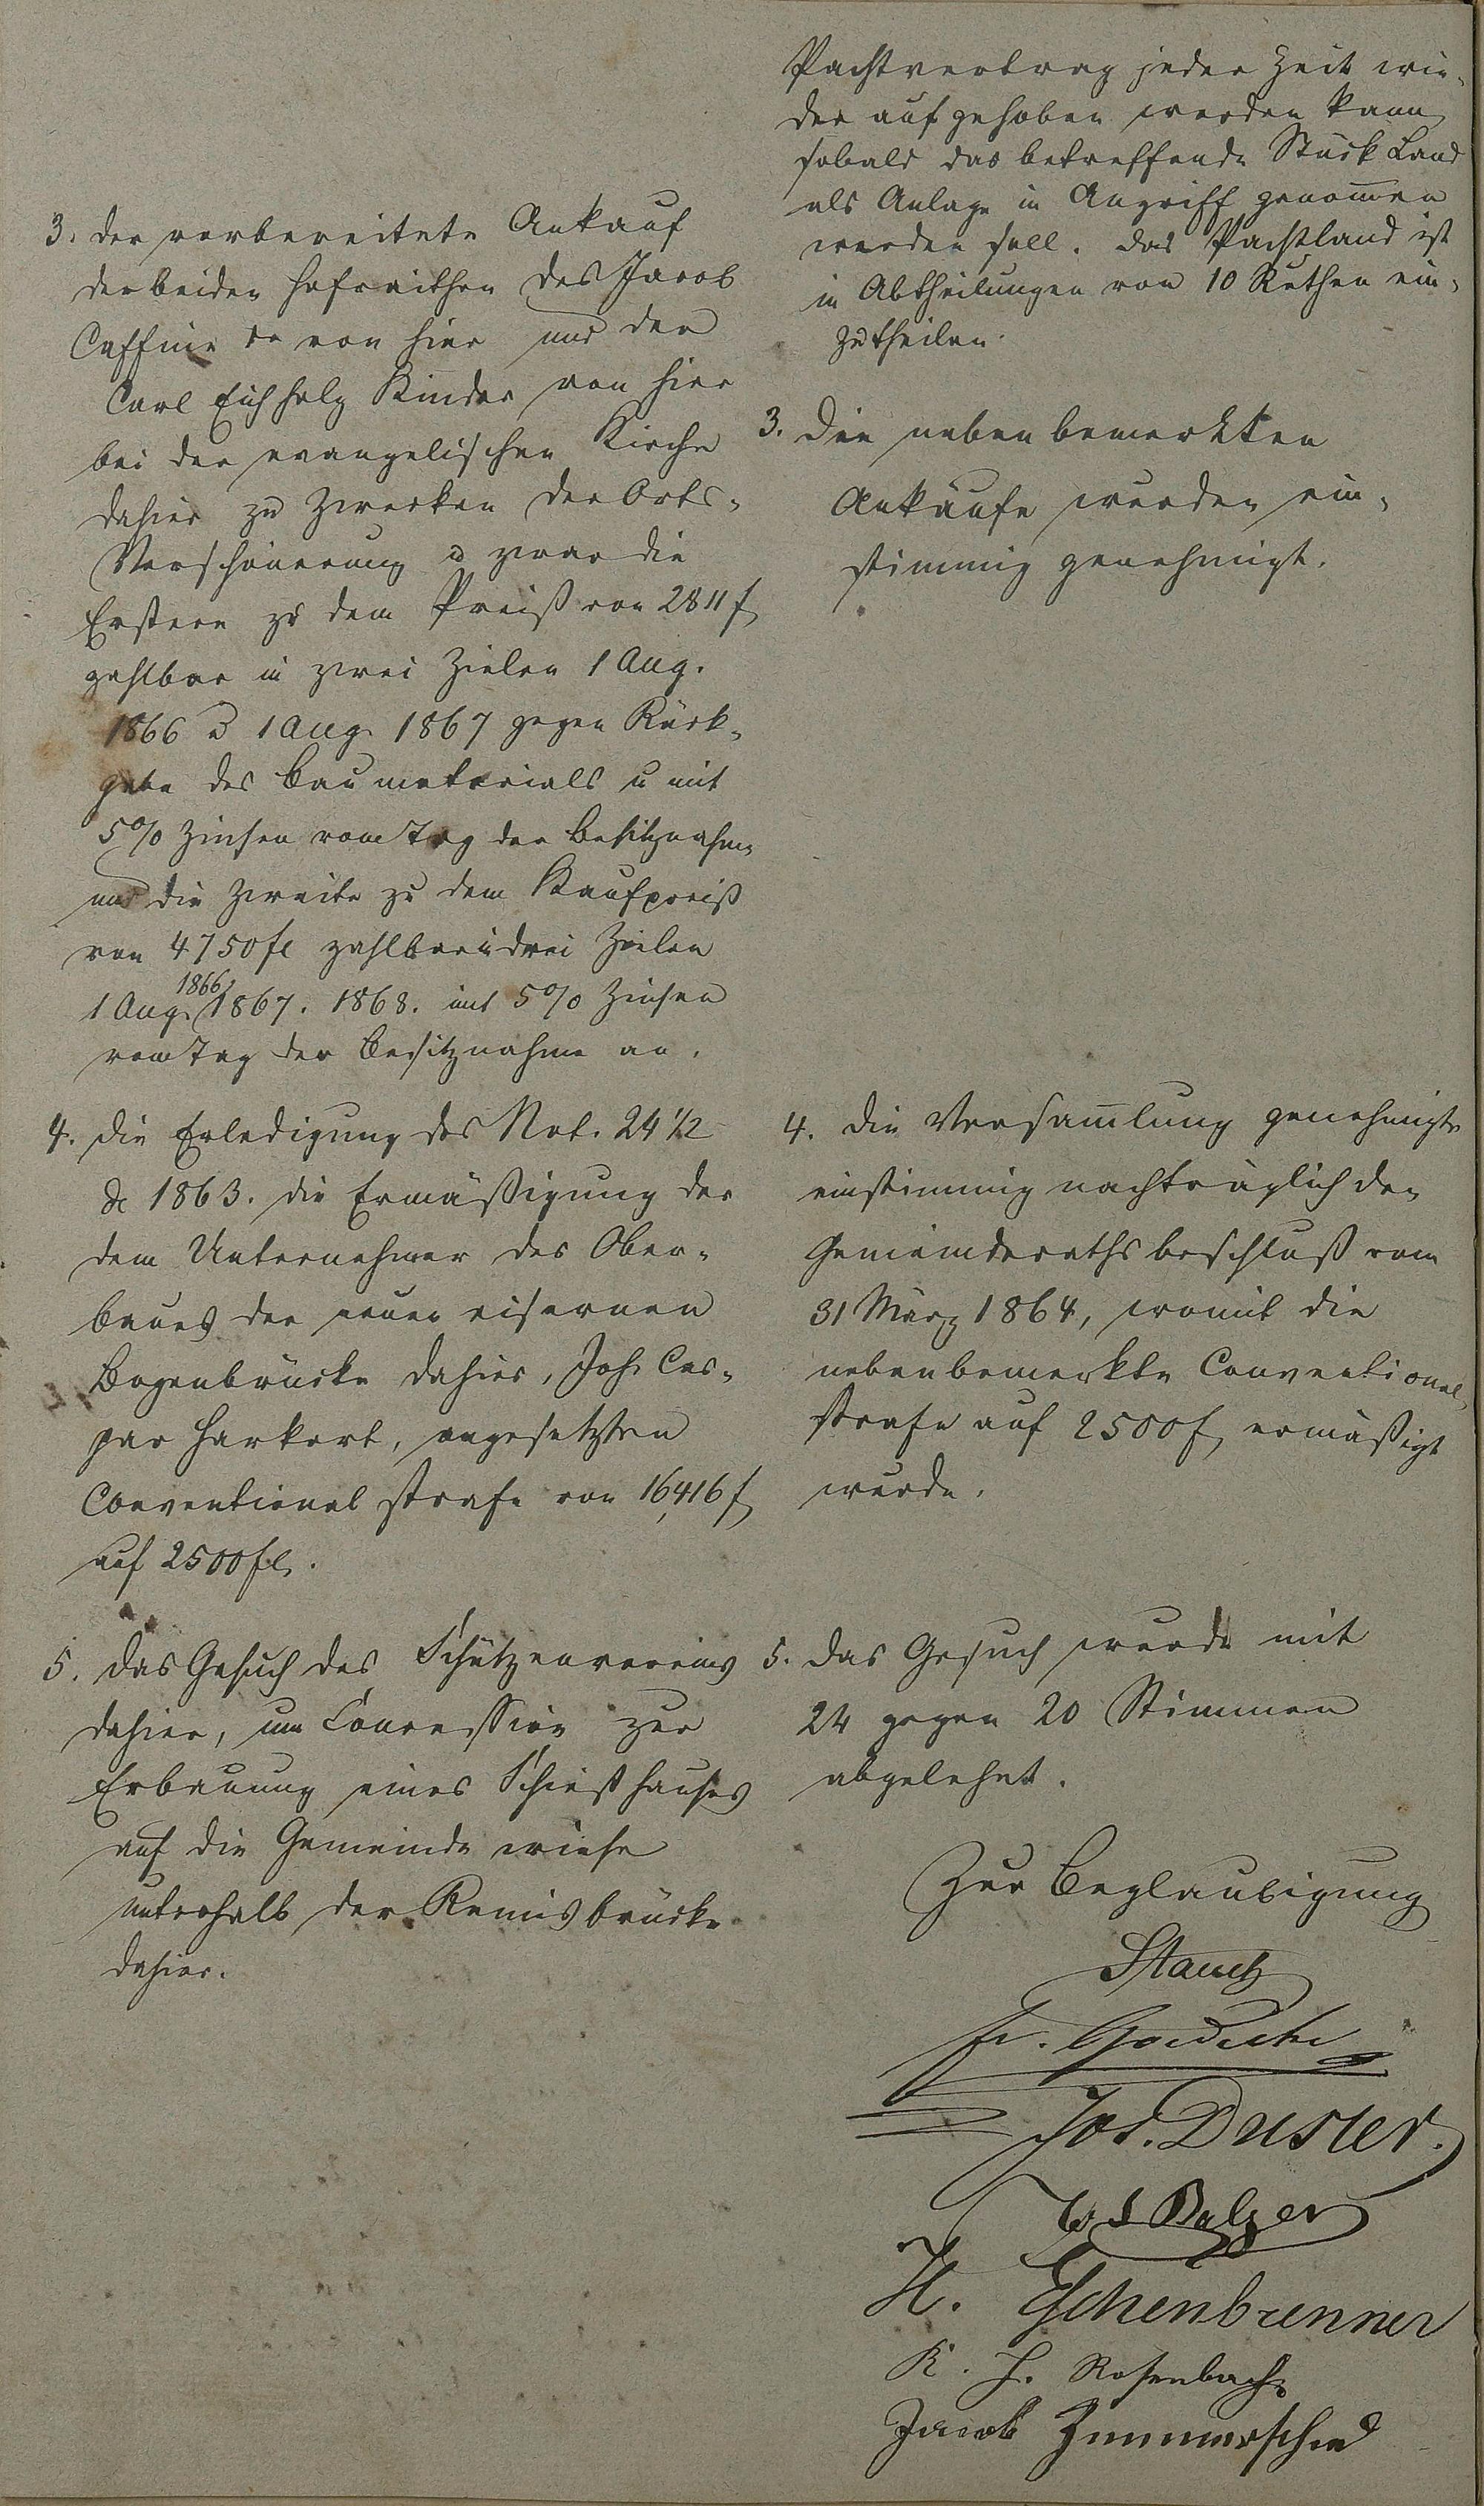 Pachtvertrag jeder Zeit wie-
der aufgehoben werden kann,
sobald das betreffende Stück Land
als Anlage in Angriff genommen
werden soll. Das Pachtland ist
in Abtheilungen von 10 Ruthen ein-
zutheilen.
3. Der vorbereitete Ankauf
der beiden Hofraithen des Jacob
von hier und der
Carl Eichholz Kinder von hier
bei der evangelischen Kirche
dahier zu Zwecken der Orts-
Verschönerung u zwar die
Erstere zu dem Preiß von 2811 f
zahlbar in zwei Zielen 1 Aug.
1866 u 1 Aug. 1867 gegen Rück-
gabe des Baumaterials u mit
5% Zinsen vom Tag der Besitznahme
und die Zweite zu dem Kaufpreiß
von 4750 fl zahlbar in drei Zielen
1 Aug. 1866, 1867. 1868. mit 5% Zinsen
vom Tag der Besitznahme an.
3. Die nebenbemerkten
Ankäufe wurden ein-
stimmig genehmigt.
4. Die Erledigung des Not. 24 1/2
de 1863. die Ermäßigung der
dem Unternehmer des Ober-
baues der neuen eisernen
Bogenbrücke dahier, Joh. Cas-
par Harkort, angesetzten
Conventionalstrafe von 16,416 f
auf 2500 fl.
4. Die Versammlung genehmigte
einstimmig nachträglich den
Gemeinderathsbeschluß vom
31 März 1864, womit die
nebenbemerkte Conventional-
strafe auf 2500 f, ermäßigt
wurde.
5. Das Gesuch des Schützenvereins
dahier, um Concession zur
Erbauung eines Schießhauses
auf die Gemeindewiese
unterhalb der Remisbrücke
dahier.
5. Das Gesuch wurde mit
24 gegen 20 Stimmen
abgelehnt.
Zur Beglaubigung
Stauch
Jos. Duster.
Balzer
H. Eschenbrenner
K. H. Rosenbach
Jacob Zimmerschied